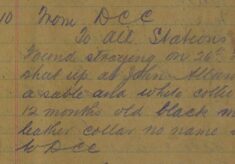 10 From DCC
To all Stations
Found straying on 26th
shut up at John Allan
a sable and white collie
12 months old black
leather collar no name
to DCC